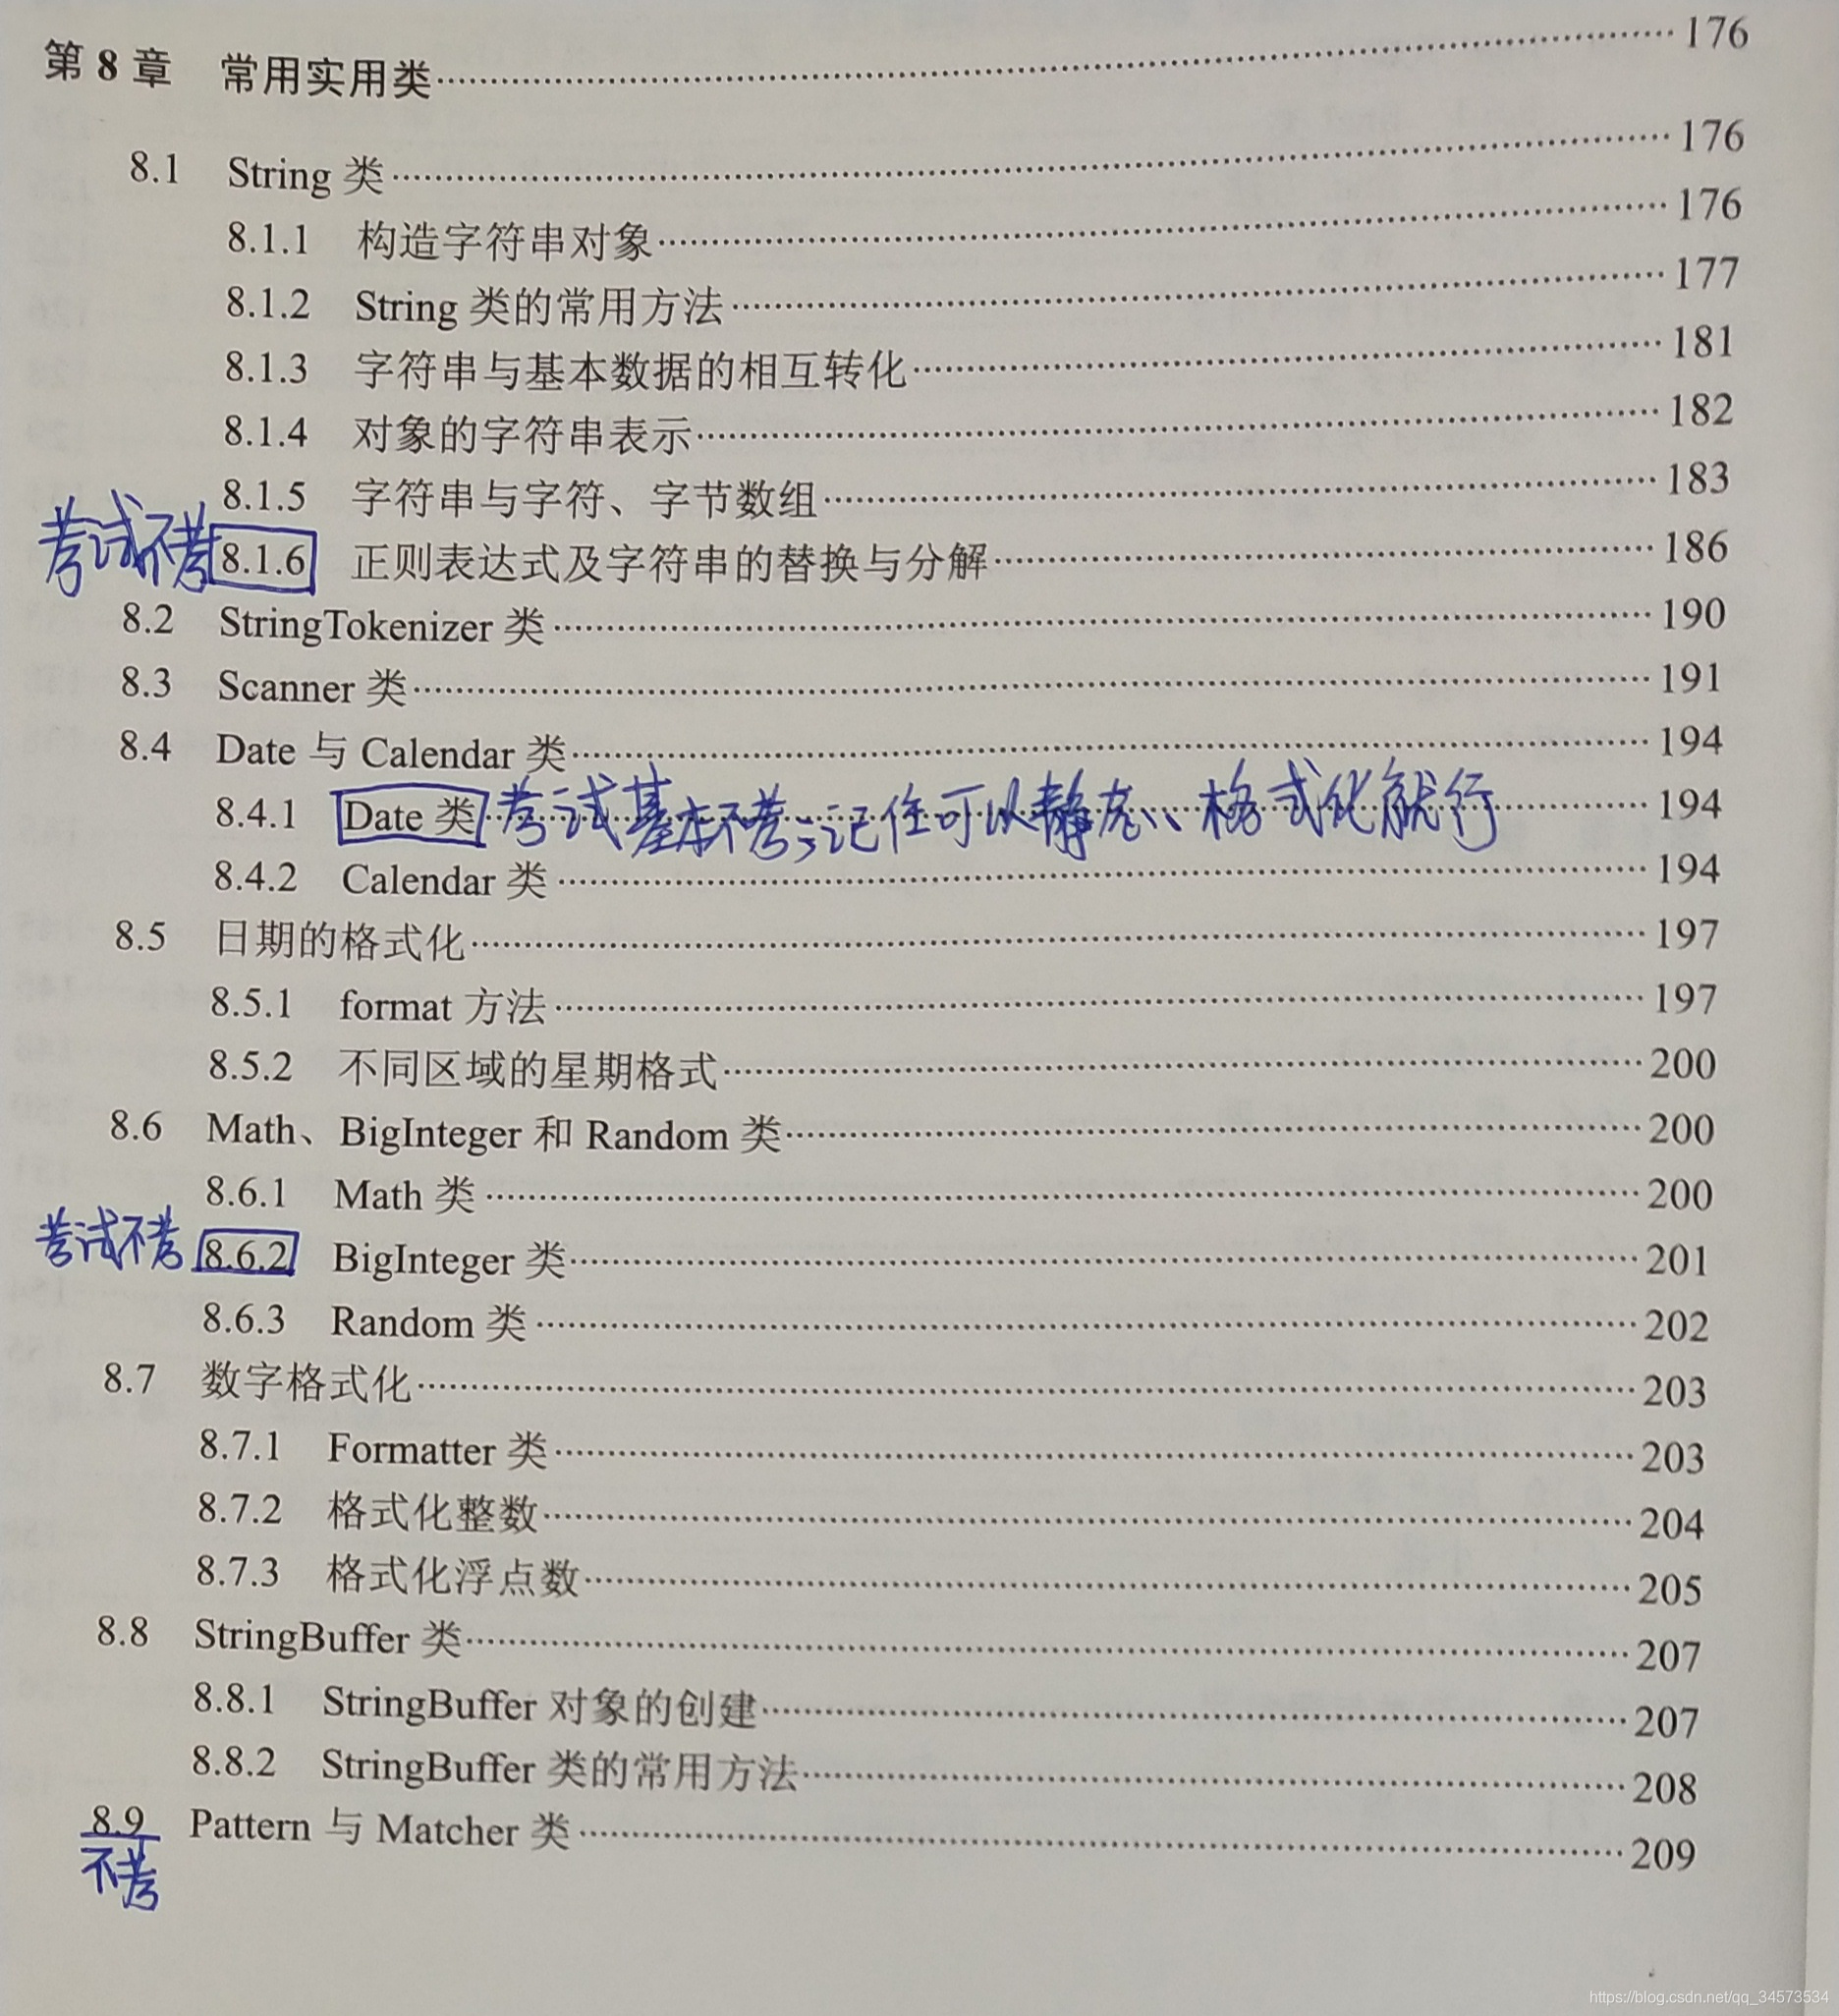 第 8 章 常用实用类 176
8.1 String 类 176
8.1.1 构造字符串对象 176
8.1.2 String 类的常用方法 177
8.1.3 字符串与基本数据的相互转化 181
8.1.4 对象的字符串表示 182
8.1.5 字符串与字符、字节数组 183
考试不考 8.1.6 正则表达式及字符串的替换与分解 186
8.2 StringTokenizer 类 190
8.3 Scanner 类 191
8.4 Date 与 Calendar 类 194
8.4.1 Date 类 考试基本不考;记住可以、格式化就行 194
8.4.2 Calendar 类 194
8.5 日期的格式化 197
8.5.1 format 方法 197
8.5.2 不同区域的星期格式 200
8.6 Math、BigInteger 和 Random 类 200
8.6.1 Math 类 200
考试不考 8.6.2 BigInteger 类 201
8.6.3 Random 类 202
8.7 数字格式化 203
8.7.1 Formatter 类 203
8.7.2 格式化整数 204
8.7.3 格式化浮点数 205
8.8 StringBuffer 类 207
8.8.1 StringBuffer 对象的创建 207
8.8.2 StringBuffer 类的常用方法 208
8.9 Pattern 与 Matcher 类 209
不考
https://blog.csdn.net/qq_34573534